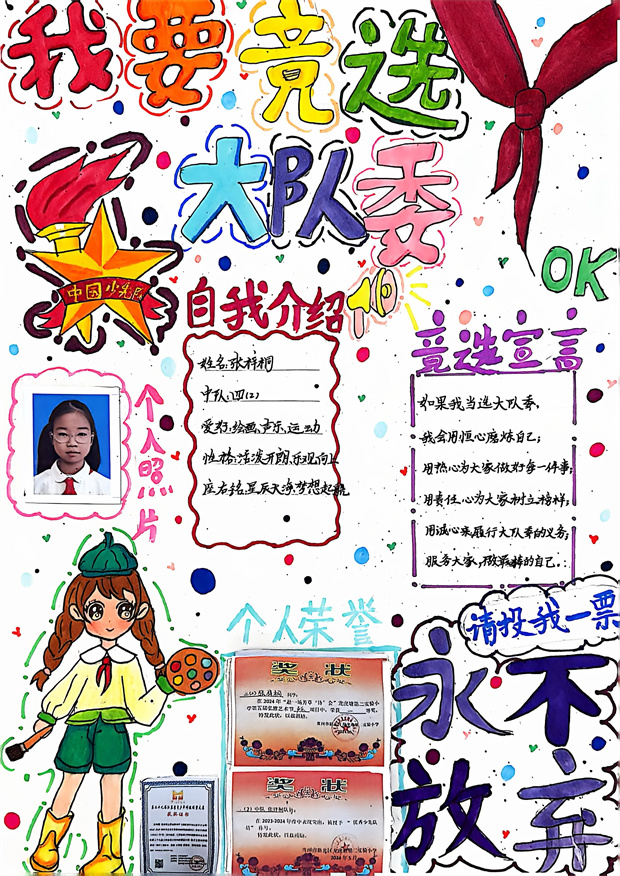 我要竞选
大队委
中国少先队
OK
自我介绍
姓名:张梓桐
中队:四(2)
爱好:绘画、音乐、运动
性格:活泼开朗、乐观向上
座右铭:星辰大海,梦想起航
竞选宣言
如果我当选大队委,
我会用恒心磨炼自己;
用热心为大家做好每一件事;
用责任心为大家树立榜样;
用诚心来履行大队委的义务;
服务大家,做最棒的自己.
个人照片
个人荣誉
奖状
同学:
特发此状,以兹鼓励。
奖状
特发此状,以兹鼓励。
获奖证书
请投我一票
永不
放弃